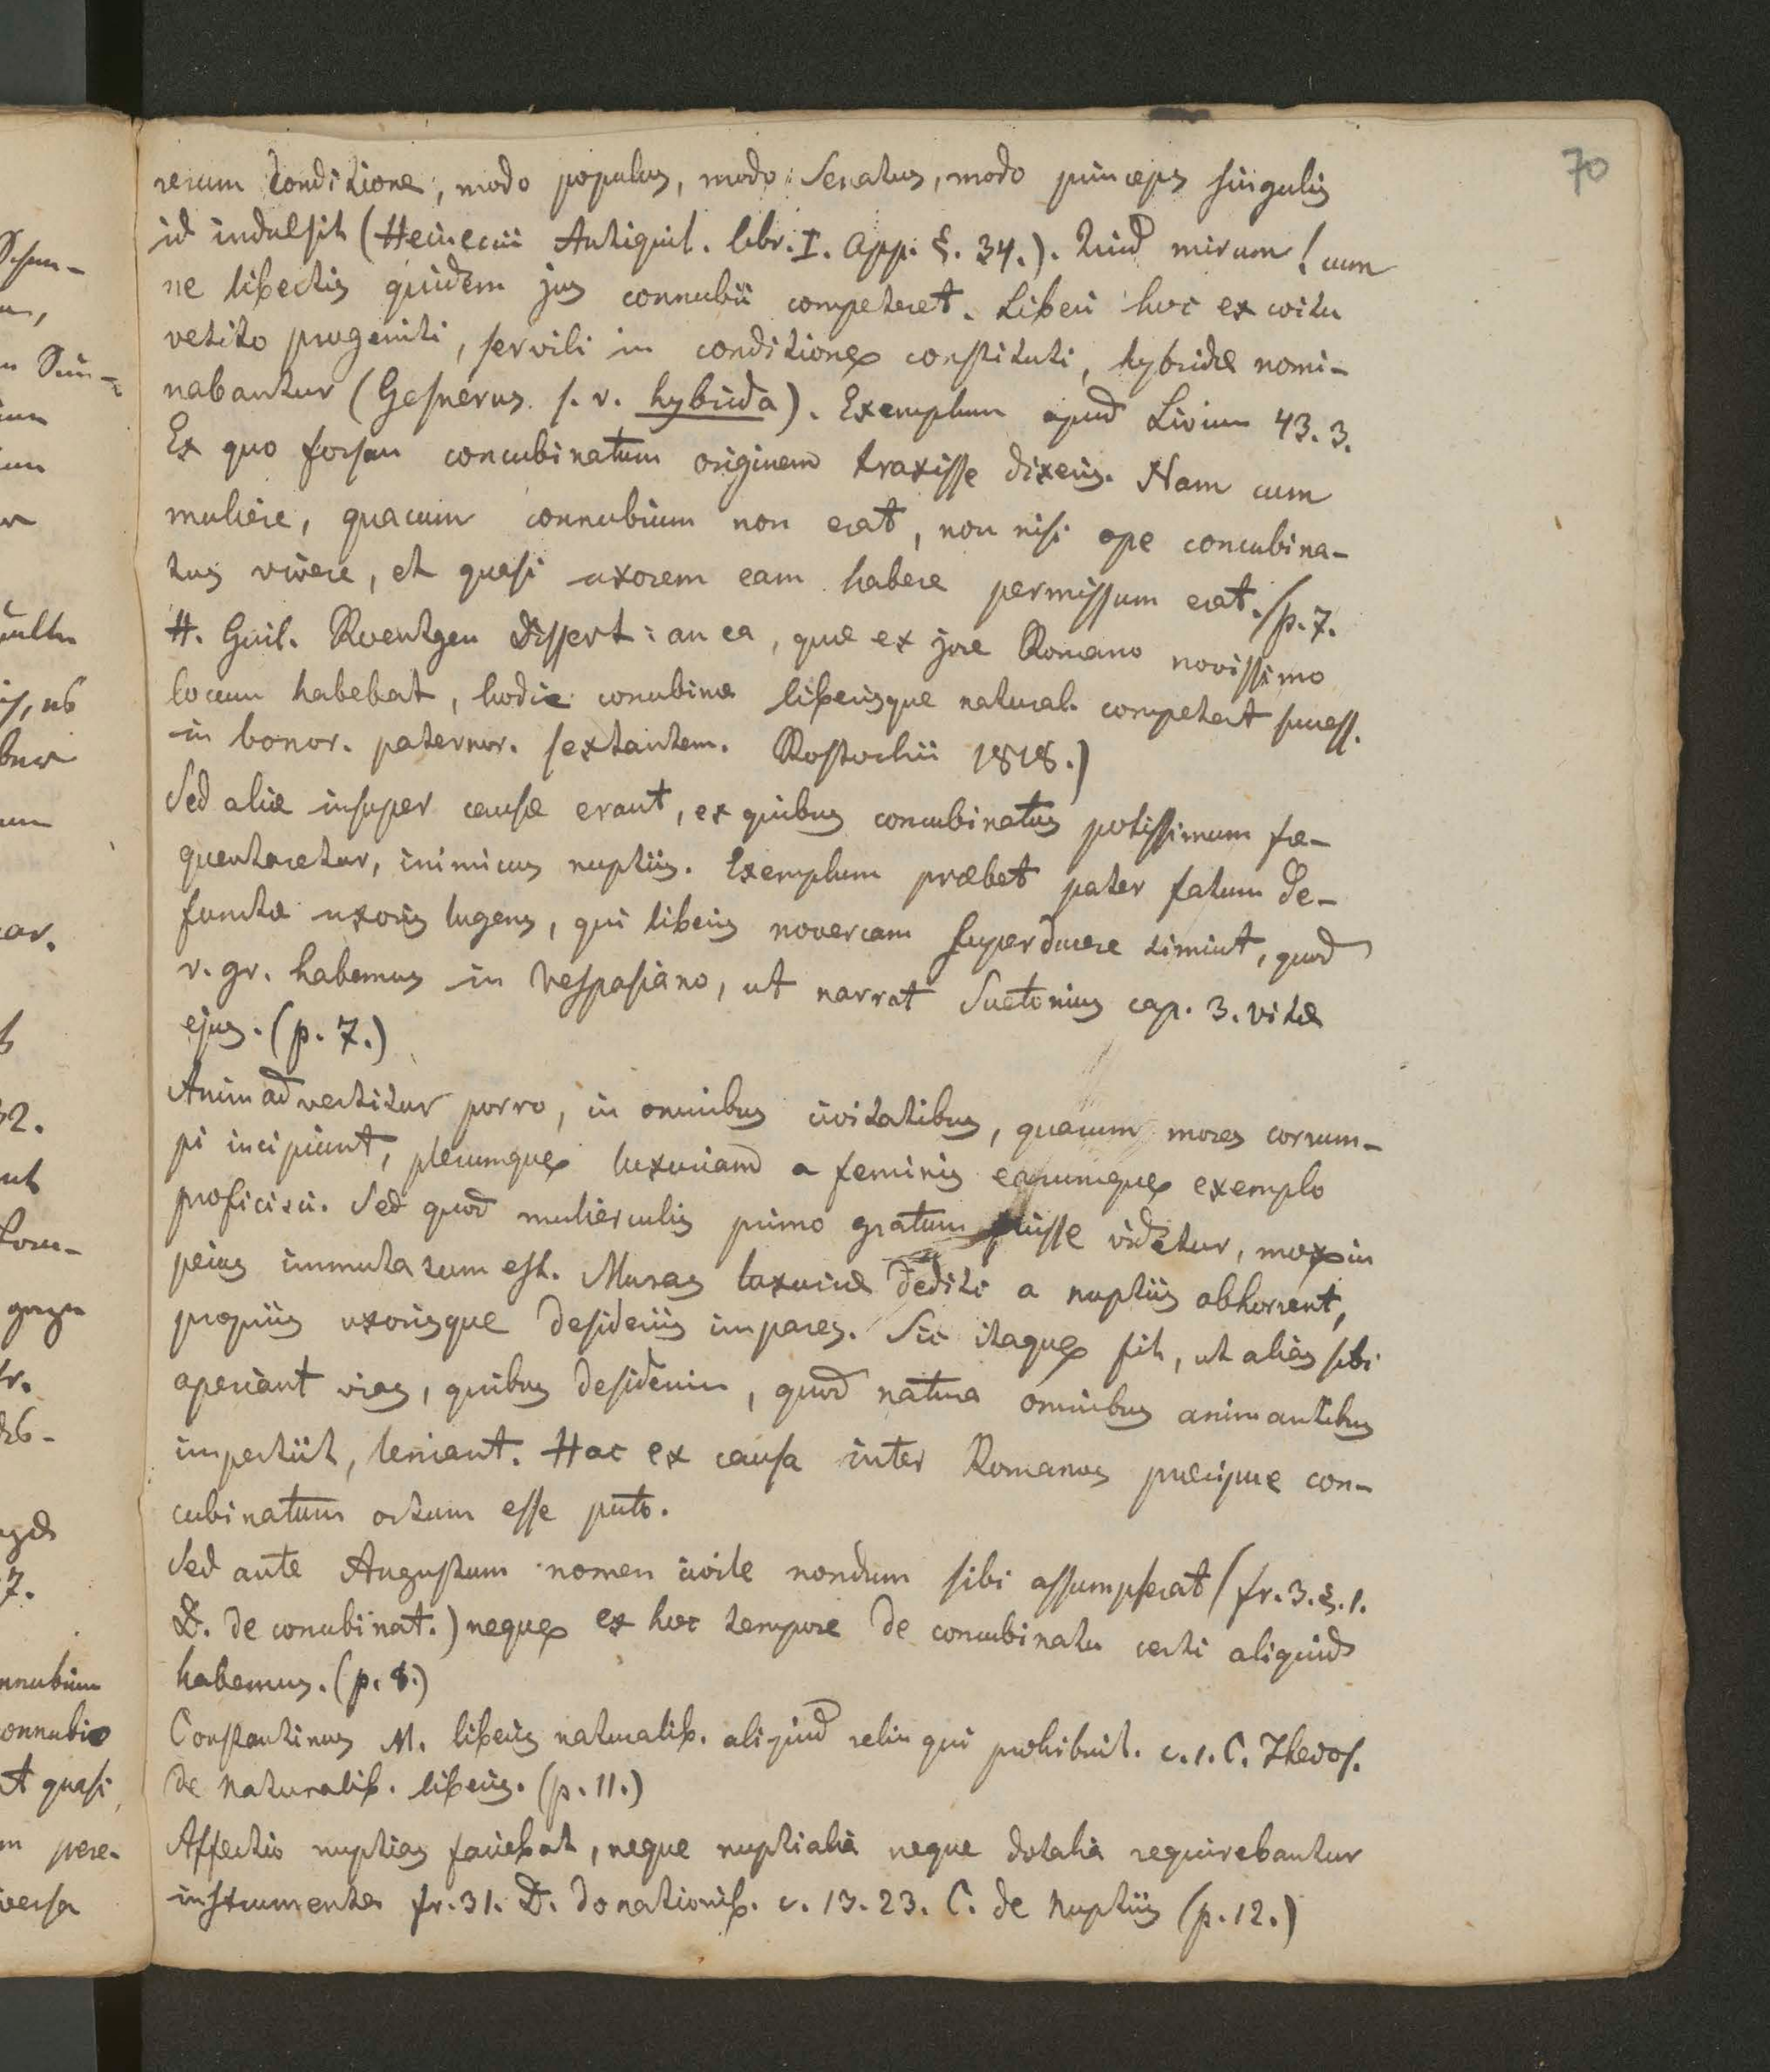 70
rerum conditione, modo populus, modo Senatus, modo princeps singulis
id indulsit (Heineccii Antiquit. libr. I. App. §. 34.). Quid mirum! cum
ne libertis quidem jus connubii competeret. Liberi hoc ex coitu
vetito progeniti, servili in conditione constituti, hybridæ nomi-
nabantur (Gesnerus s. v. hybrida). Exemplum apud Livium 43. 3.
Ex quo forsan concubinatum originem traxisse dixeris. Nam cum
muliere, quacum connubium non erat, non nisi ope concubina-
tus vivere, et quasi uxorem eam habere permissum erat. (p. 7.
H. Guil. Roentgen Dissert: an ea, quæ ex jure Romano novissimo
locum habebat, hodie concubinæ liberisque natural. competat success.
in bonor. paternor. sextantem. Rostochii 1818.)
Sed aliæ insuper causæ erant, ex quibus concubinatus potissimum fre-
quentaretur, inimicus nuptiis. Exemplum præbet pater fatum de-
functæ uxoris lugens, qui liberis novercam superducere timuit, quod
v. gr. habemus in Vespasiano, ut narrat Suetonius cap. 3. vitæ
ejus. (p. 7.)
Animadvertitur porro, in omnibus civitatibus, quarum mores corrum-
pi incipiunt, plerumque luxuriam a feminis earumque exemplo
proficisci. Sed quod mulierculis primo gratum fuisse videtur, mox in
peius immutatum est. Munas luxuriæ dediti a nuptiis abhorrent,
propriis uxorisque desideriis impares. Sic itaque fit, ut alias sibi
aperiant vias, quibus desiderium, quod natura omnibus animantibus
impertiit, leniant. Hac ex causa inter Romanos præcipue con-
cubinatum ortum esse puto.
Sed ante Augustum nomen civile nondum sibi assumpserat (fr. 3. §. 1.
D. de concubinat.) neque ex hoc tempore de concubinatu certi aliquid
habemus. (p. 8.)
Constantinus M. liberis naturalib. aliquid relinqui prohibuit. c. 1. C. Theos.
de naturalib. liberis. (p. 11.)
Affectio nuptias faciebat, neque nuptialia neque dotalia requirebantur
instrumenta fr. 31. D. donationib. c. 13. 23. C. de Nuptiis (p. 12.)